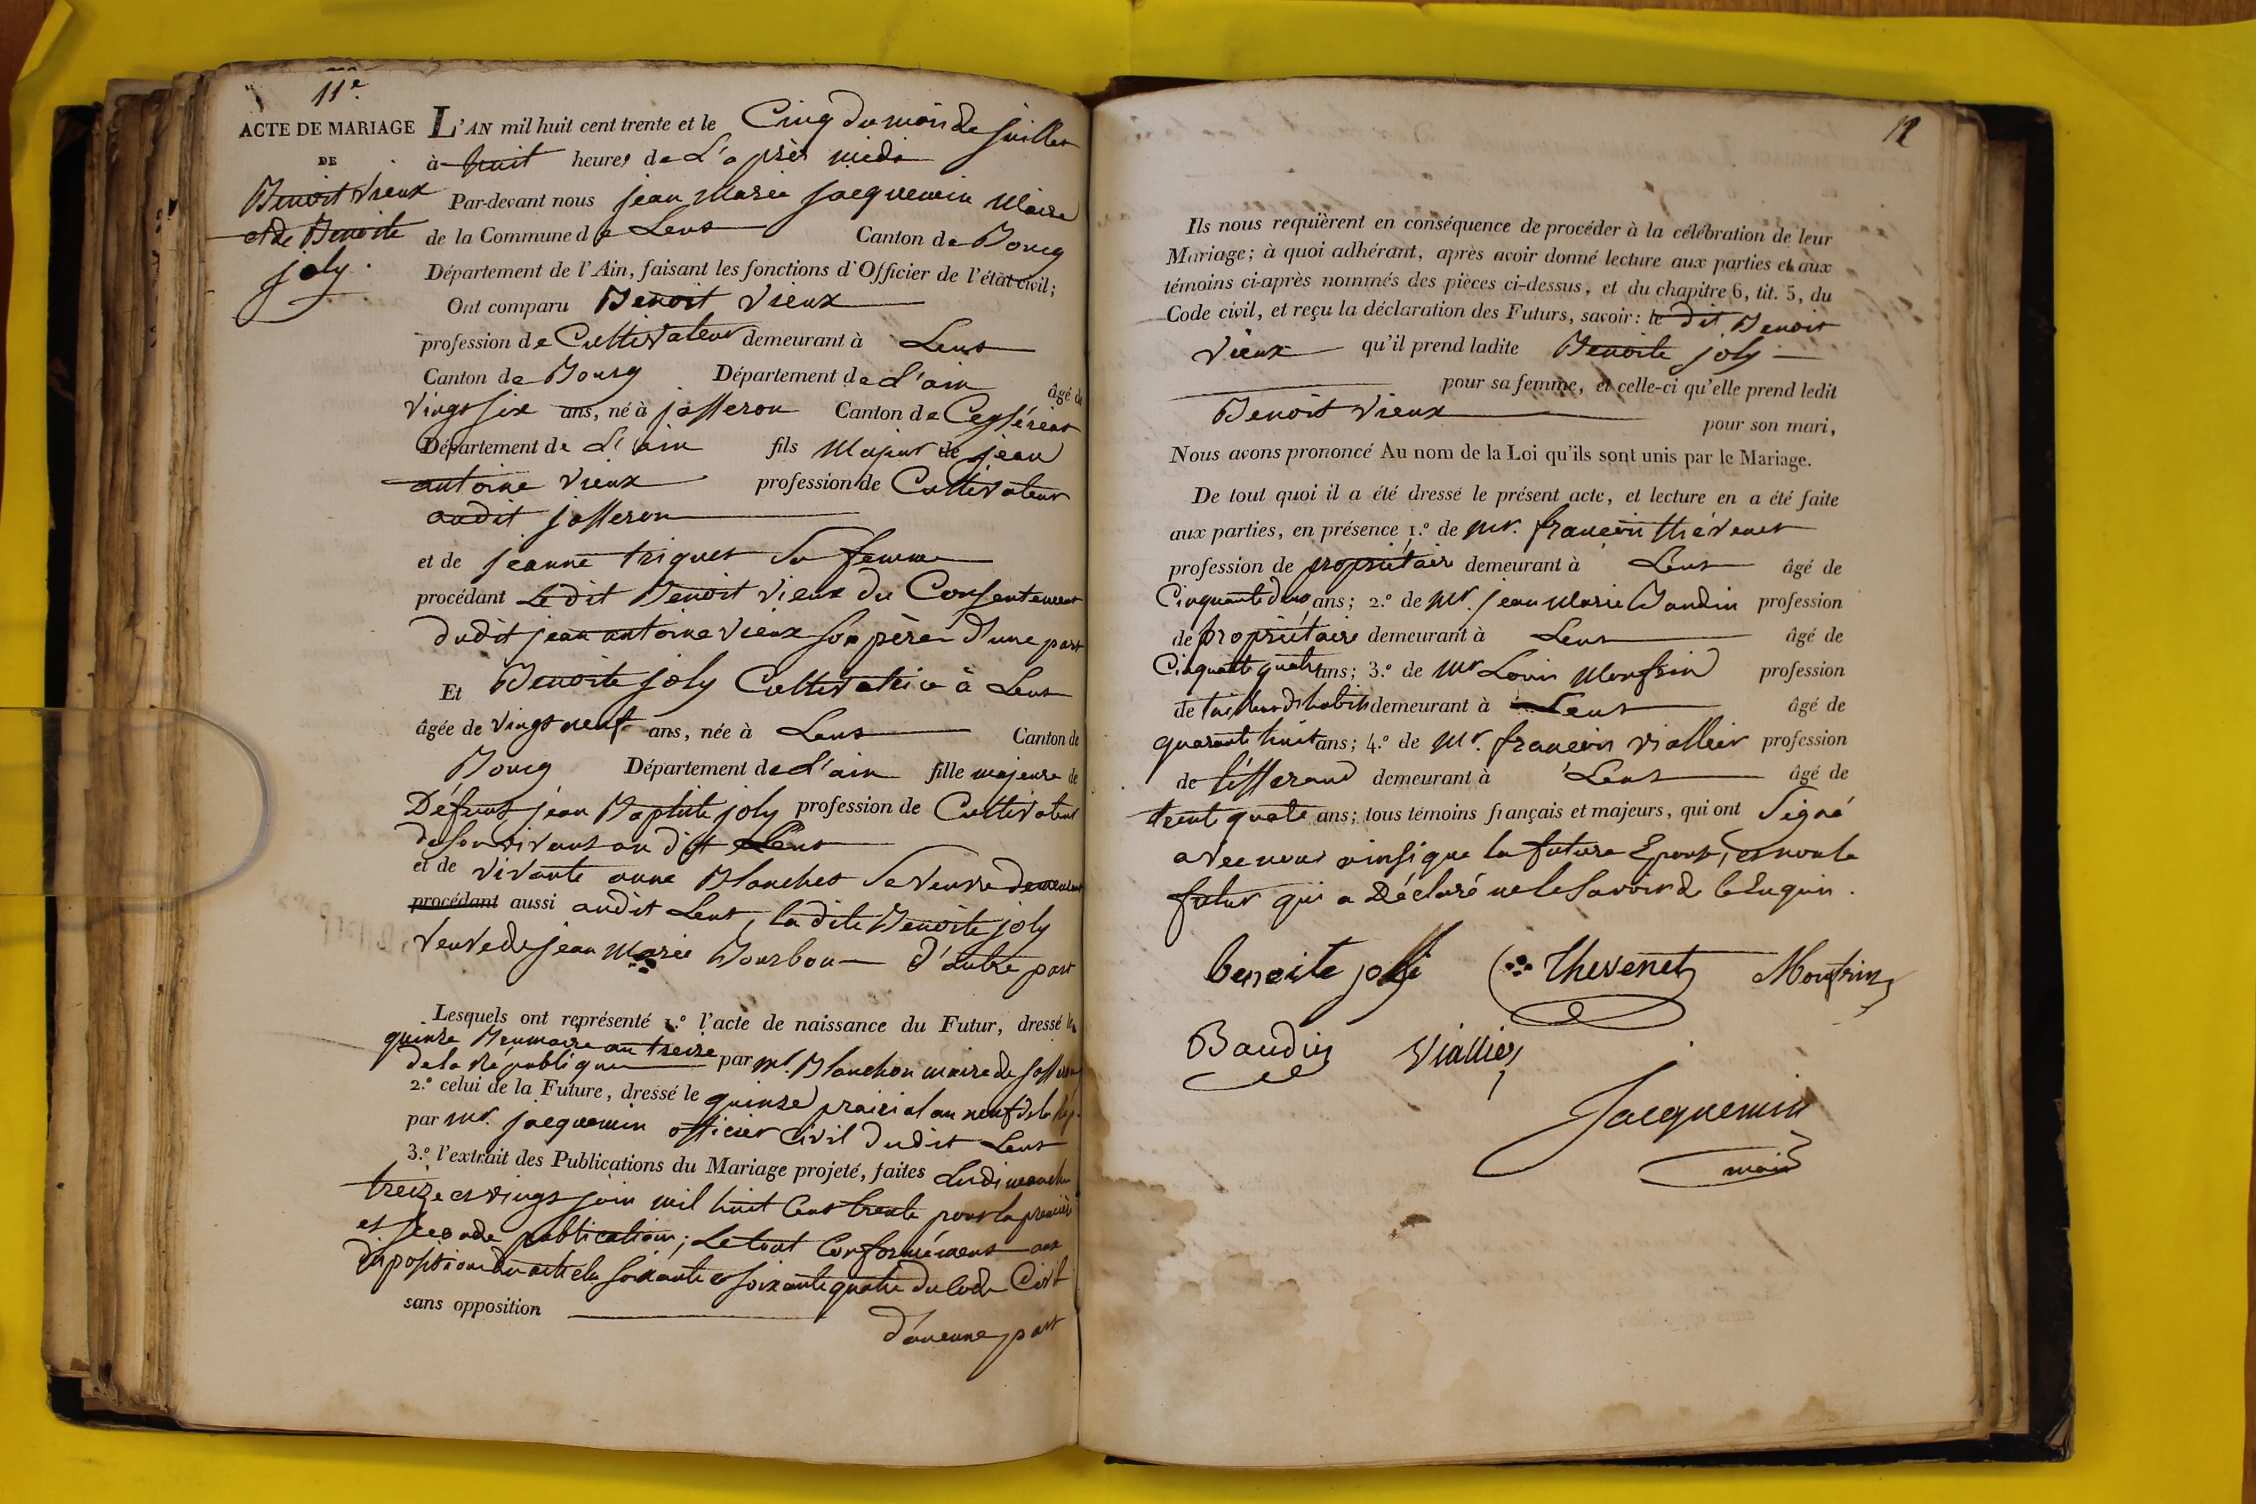 11e.
ACTE DE MARIAGE
DE
Benoit Vieux
et de Benoite
joly.
L'AN mil huit cent trente et le Cinq du mois de juillet
à huit heures de L'après midi
Par-devant nous jean Marie jacquemin Maire
de la Commune de Lent Canton de Bourg
Département de l'Ain, faisant les fonctions d'Officier de l'état civil;
Ont comparu Benoit Vieux
profession de Cultivateur demeurant à Lent
Canton de Bourg Département de L'ain âgé de
vingt six ans, né à jasseron Canton de Ceyzériat
Département de L'ain fils Majeur de jean
antoine Vieux profession de Cultivateur
audit jasseron
et de jeanne triquet Sa femme
procédant Ledit Benoit Vieux du Consentement
dudit jean antoine Vieux Son père D'une part
Et Benoite joly Cultivatrice à Lent
âgée de vingt neuf ans, née à Lent Canton de
Bourg Département de L'ain fille majeure de
Défunt jean Baptiste joly profession de Cultivateur
de Son vivant au dit Lent
et de vivante anne Blanchet Sa veuve demeurant
procédant aussi audit Lent, ladite Benoite joly
Veuve de jean Marie Bourbon D'autre part
Lesquels ont représenté 1.º l'acte de naissance du Futur, dressé le
quinze Brumaire an treize
de la République par Mr. Blanchon maire de jasseron
2.º celui de la Future, dressé le quinze prairial an neuf de la Rép.
par Mr. jacquemin officier Civil dudit Lent
3.º l'extrait des Publications du Mariage projeté, faites Les dimanche
treize et vingt juin mil huit Cent trente pour la première
et seconde publication; Le tout Conformément aux
dispositions des articles soixante et soixante quatre du Code Civil
sans opposition
D'aucune part
12
Ils nous requièrent en conséquence de procéder à la célébration de leur
Mariage; à quoi adhérant, après avoir donné lecture aux parties et aux
témoins ci-après nommés des pièces ci-dessus, et du chapitre 6, tit. 5, du
Code civil, et reçu la déclaration des Futurs, savoir: le dit Benoit
Vieux qu'il prend ladite Benoite joly
pour sa femme, et celle-ci qu'elle prend ledit
Benoit Vieux
pour son mari,
Nous avons prononcé Au nom de la Loi qu'ils sont unis par le Mariage.
De tout quoi il a été dressé le présent acte, et lecture en a été faite
aux parties, en présence 1.º de Mr. françois thévenet
profession de propriétaire demeurant à Lent âgé de
Cinquante deux ans; 2.º de Mr. jean Marie Baudin profession
de propriétaire demeurant à Lent âgé de
Cinquante quatre ans; 3.º de Mr Louis Monfrin profession
de tailleur d'habits demeurant à Lent âgé de
quarante huit ans; 4.º de Mr. françois viallier profession
de tisserand demeurant à Lent âgé de
trente quatre ans; tous témoins français et majeurs, qui ont Signé
avec nous ainsi que la future Epouse, et non le
futur qui a Déclaré ne le Savoir de ce Enquis.
benoite joli Thevenet Monfrin
Baudin Viallier
Jacquemin
maire